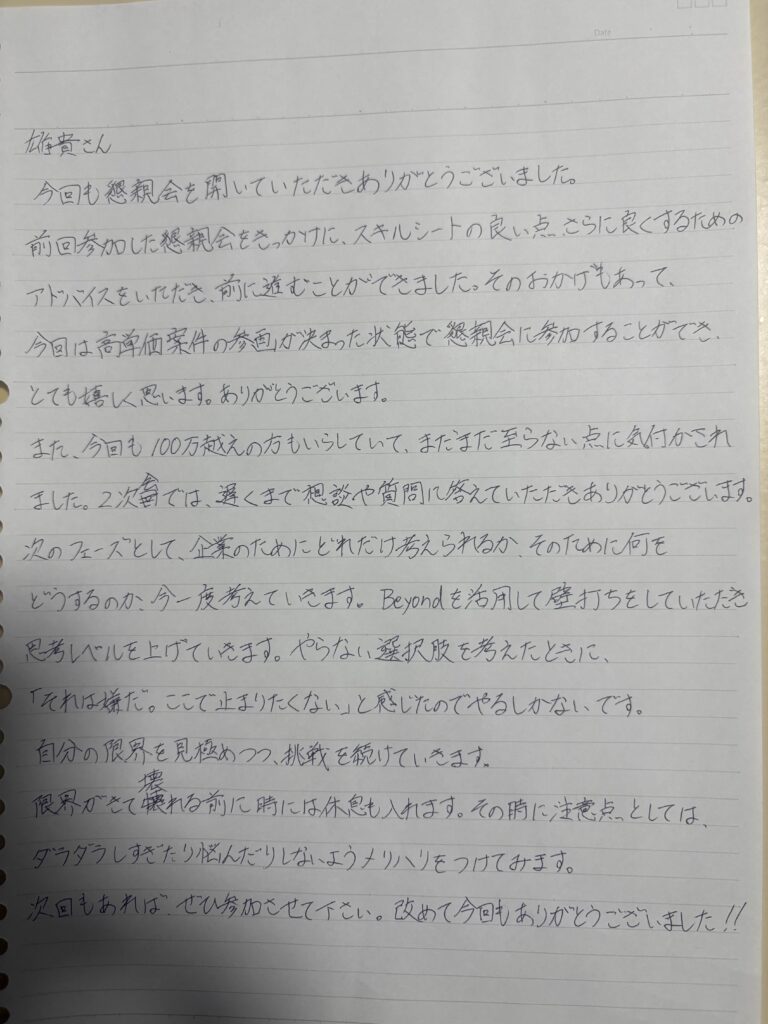 Date
雄貴さん
今回も懇親会を開いていただきありがとうございました。
前回参加した懇親会をきっかけに、スキルシートの良い点、さらに良くするための
アドバイスをいただき、前に進むことができました。そのおかげもあって、
今回は高単価案件の参画が決まった状態で懇親会に参加することができ、
とても嬉しく思います。ありがとうございます。
また、今回も100万越えの方もいらしていて、まだまだ至らない点に気付かされ
ました。2次会では、遅くまで想談や質問に答えていただきありがとうございます。
次のフェーズとして、企業のためにどれだけ考えられるか、そのために何を
どうするのか、今一度考えていきます。Beyondを活用して壁打ちをしていただき
思考レベルを上げていきます。やらない選択肢を考えたときに、
「それは嫌だ。ここで止まりたくない」と感じたのでやるしかないです。
自分の限界を見極めつつ、挑戦を続けていきます。
限界がきて壊れる前に時には休息も入れます。その時に注意点としては、
ダラダラしすぎたり悩んだりしないようメリハリをつけてみます。
次回もあれば、ぜひ参加させて下さい。改めて今回もありがとうございました!!